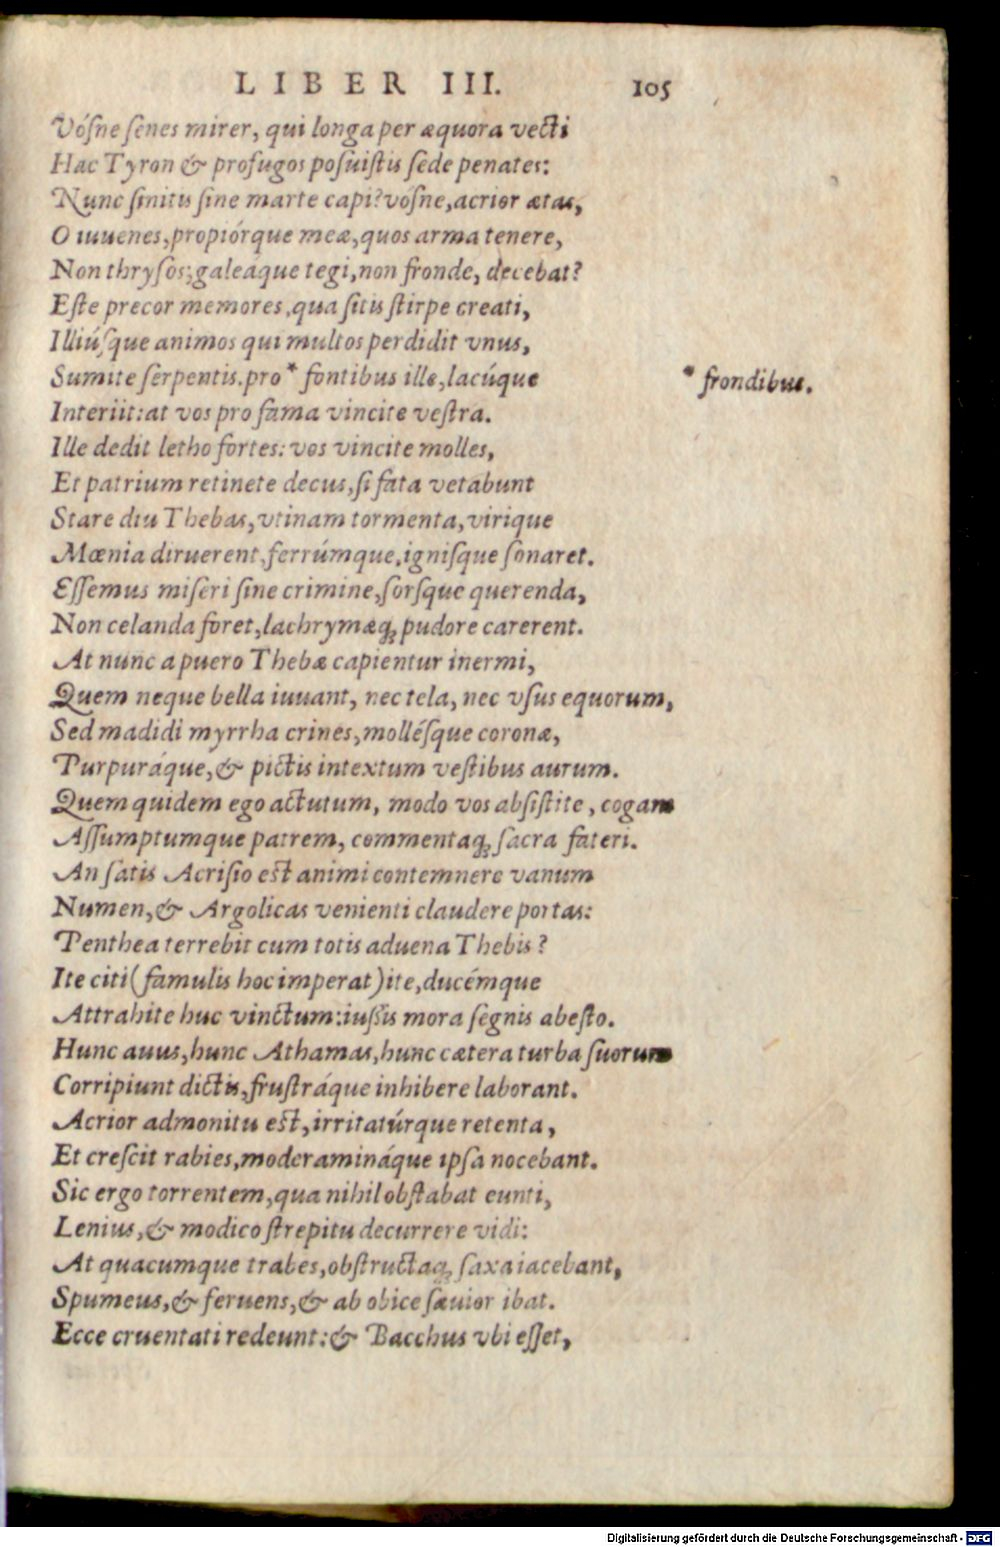 LIBER III. 105
Vósne senes mirer, qui longa per æquora vecti
Hac Tyron & profugos posuistis sede penates:
Nunc sinitis sine marte capi? vósne, acrior ætas,
O iuuenes, propiórque meæ, quos arma tenere,
Non thyrsos; galeáque tegi, non fronde, decebat?
Este precor memores, qua sitis stirpe creati,
Illiúsque animos qui multos perdidit vnus,
Sumite serpentis. pro * fontibus ille, lacúque * frondibus.
Interiit: at vos pro fama vincite vestra.
Ille dedit letho fortes: vos vincite molles,
Et patrium retinete decus, si fata vetabunt
Stare diu Thebas, vtinam tormenta, virique
Mœnia diruerent, ferrúmque, ignisque sonaret.
Essemus miseri sine crimine, sorsque querenda,
Non celanda foret, lachrymæq; pudore carerent.
At nunc a puero Thebæ capientur inermi,
Quem neque bella iuuant, nec tela, nec vsus equorum,
Sed madidi myrrha crines, mollésque coronæ,
Purpuráque, & pictis intextum vestibus aurum.
Quem quidem ego actutum, modo vos absistite, cogam
Assumptumque patrem, commentaq; sacra fateri.
An satis Acrisio est animi contemnere vanum
Numen, & Argolicas venienti claudere portas:
Penthea terrebit cum totis aduena Thebis?
Ite citi (famulis hoc imperat) ite, ducémque
Attrahite huc vinctum: iussis mora segnis abesto.
Hunc auus, hunc Athamas, hunc cætera turba suorum
Corripiunt dictis, frustráque inhibere laborant.
Acrior admonitu est, irritatúrque retenta,
Et crescit rabies, moderamináque ipsa nocebant.
Sic ergo torrentem, qua nihil obstabat eunti,
Lenius, & modico strepitu decurrere vidi:
At quacumque trabes, obstructaq; saxa iacebant,
Spumeus, & feruens, & ab obice sæuior ibat.
Ecce cruentati redeunt: & Bacchus vbi esset,
Digitalisierung gefördert durch die Deutsche Forschungsgemeinschaft - DFG